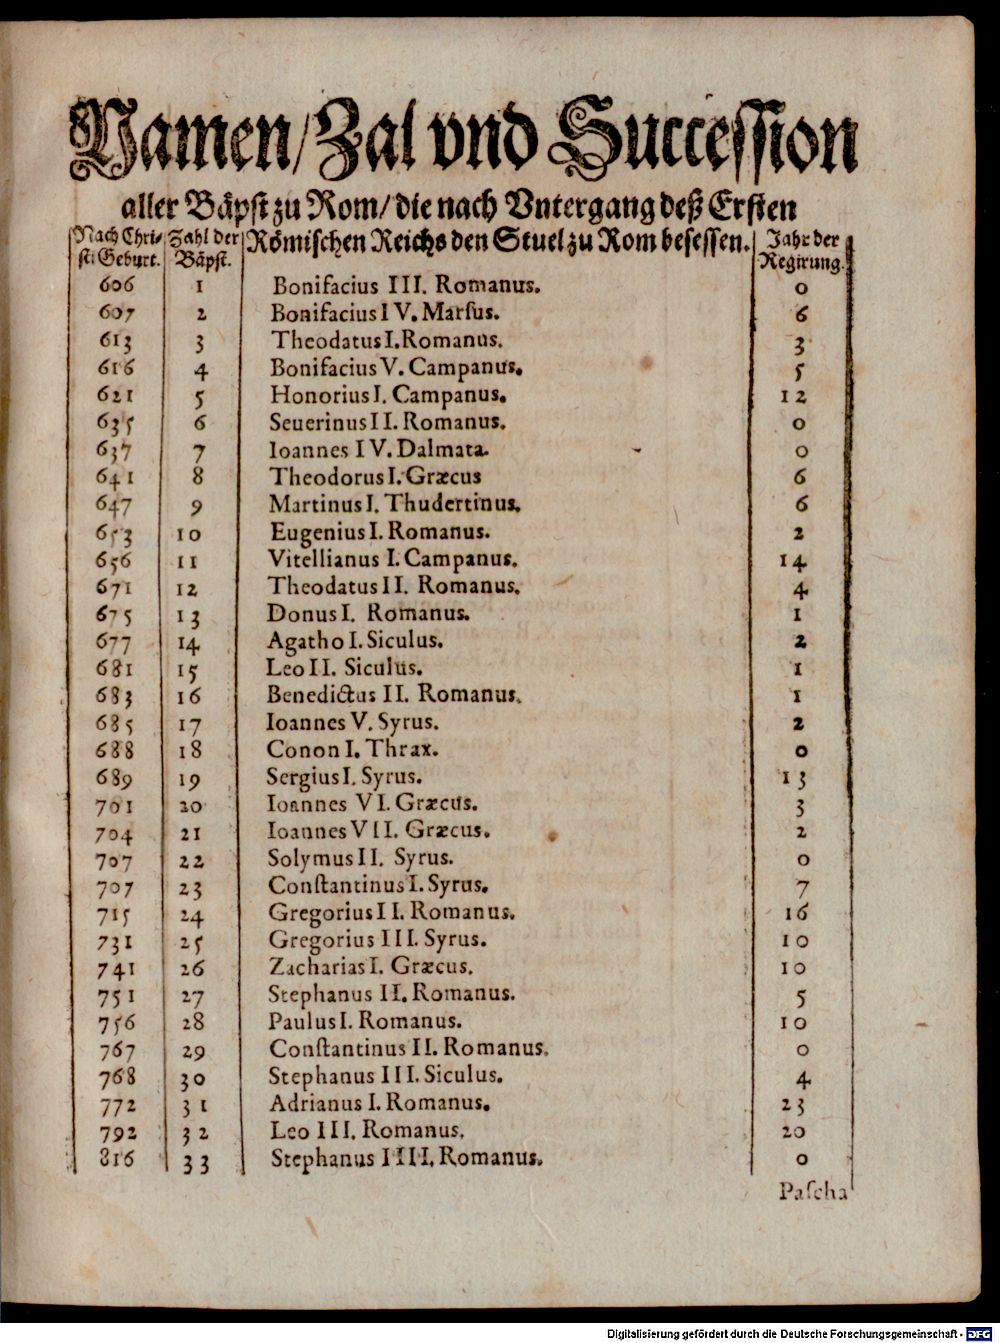 Namen/ Zal vnd Succession
aller Bäpst zu Rom/ die nach Vntergang deß Ersten
Nach Chri- Zahl der Römischen Reichs den Stuel zu Rom besessen. Jahr der
sti Geburt. Bäpst. Regirung.
606 1 Bonifacius III. Romanus. 0
607 2 Bonifacius IV. Marſus. 6
613 3 Theodatus I. Romanus. 3
616 4 Bonifacius V. Campanus. 5
621 5 Honorius I. Campanus. 12
635 6 Seuerinus II. Romanus. 0
637 7 Ioannes IV. Dalmata. 0
641 8 Theodorus I. Græcus 6
647 9 Martinus I. Thudertinus. 6
653 10 Eugenius I. Romanus. 2
656 11 Vitellianus I. Campanus. 14
671 12 Theodatus II. Romanus. 4
675 13 Donus I. Romanus. 1
677 14 Agatho I. Siculus. 2
681 15 Leo II. Siculus. 1
683 16 Benedictus II. Romanus. 1
685 17 Ioannes V. Syrus. 2
688 18 Conon I. Thrax. 0
689 19 Sergius I. Syrus. 13
701 20 Ioannes VI. Græcus. 3
704 21 Ioannes VII. Græcus. 2
707 22 Solymus II. Syrus. 0
707 23 Conſtantinus I. Syrus. 7
715 24 Gregorius II. Romanus. 16
731 25 Gregorius III. Syrus. 10
741 26 Zacharias I. Græcus. 10
751 27 Stephanus II. Romanus. 5
756 28 Paulus I. Romanus. 10
767 29 Conſtantinus II. Romanus. 0
768 30 Stephanus III. Siculus. 4
772 31 Adrianus I. Romanus. 23
792 32 Leo III. Romanus. 20
816 33 Stephanus IIII. Romanus. 0
Paſcha
Digitalisierung gefördert durch die Deutsche Forschungsgemeinschaft - DFG